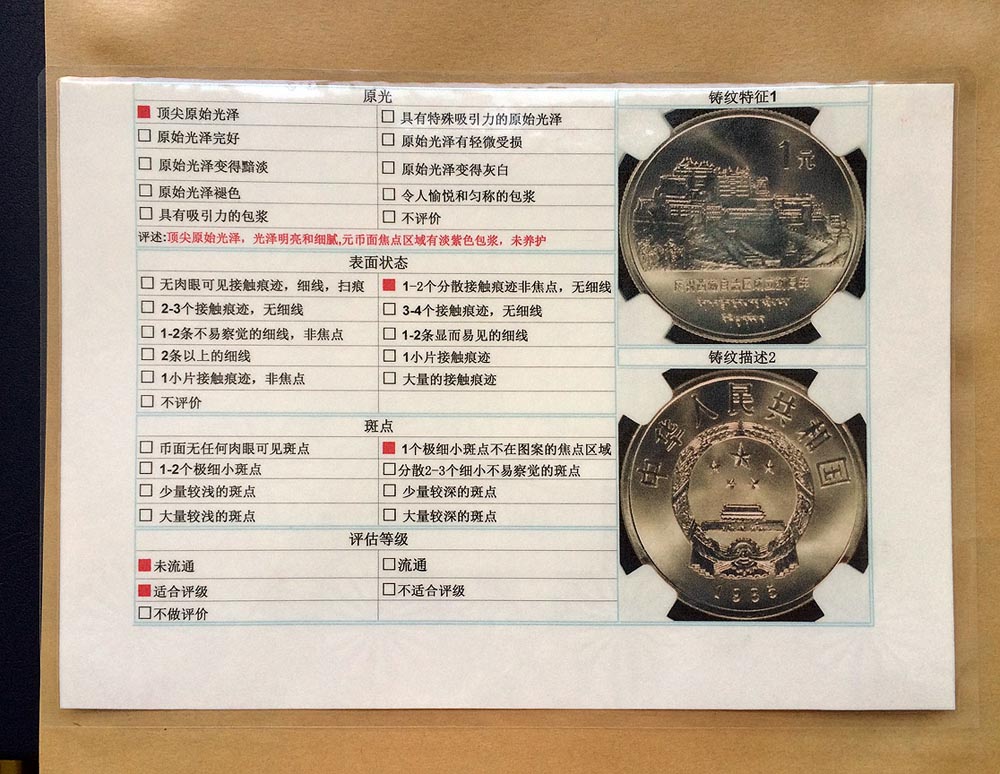 原光
■ 顶尖原始光泽 □ 具有特殊吸引力的原始光泽
□ 原始光泽完好 □ 原始光泽有轻微受损
□ 原始光泽变得黯淡 □ 原始光泽变得灰白
□ 原始光泽褪色 □ 令人愉悦和匀称的包浆
□ 具有吸引力的包浆 □ 不评价
评述:顶尖原始光泽，光泽明亮和细腻,元币面焦点区域有淡紫色包浆，未养护
表面状态
□ 无肉眼可见接触痕迹，细线，扫痕 ■ 1-2个分散接触痕迹非焦点，无细线
□ 2-3个接触痕迹，无细线 □ 3-4个接触痕迹，无细线
□ 1-2条不易察觉的细线，非焦点 □ 1-2条显而易见的细线
□ 2条以上的细线 □ 1小片接触痕迹
□ 1小片接触痕迹，非焦点 □ 大量的接触痕迹
□ 不评价
斑点
□ 币面无任何肉眼可见斑点 ■ 1个极细小斑点不在图案的焦点区域
□ 1-2个极细小斑点 □分散2-3个细小不易察觉的斑点
□ 少量较浅的斑点 □ 少量较深的斑点
□ 大量较浅的斑点 □ 大量较深的斑点
评估等级
■未流通 □流通
■适合评级 □不适合评级
□不做评价
铸纹特征1
1元
铸纹描述2
中华人民共和国
1985